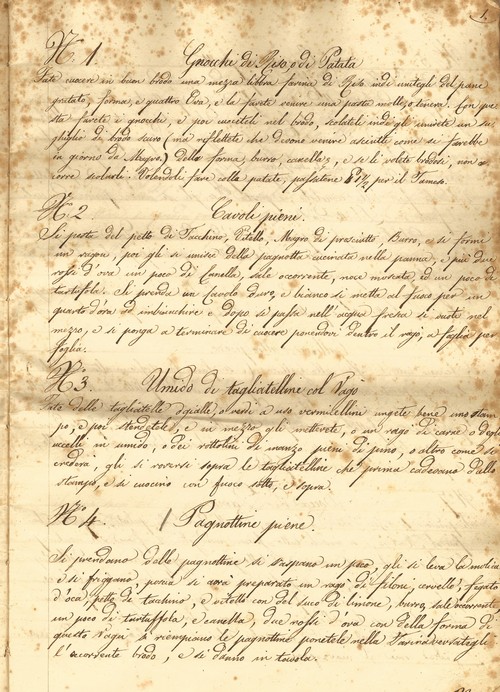 1.
N.° 1. Gnocchi di Riso, o di Patata
Fate cuocere in buon brodo una mezza libbra farina di Riso indi unitegli del pane
gratato, forma, e quattro Ova, e la farete venire una pasta molle, o tenera. Con que
sta farete i gnocchi, e poi cuoceteli nel brodo, scolateli indi gli unirete un
di brodo scuro (ma riflettete che devono venire asciutti come se sarebbe
in giorno da Magro) della forma, burro, canella, e se li volete brodosi, non oc
corre scolarli. Volendoli fare colla patate, passatene per il Tamiso.
N.° 2. Cavoli pieni.
Si pesta del petto di Tacchino, Vitello, Magro di prosciutto, Burro, e si formi
un ragou, poi gli si unisce della pagnotta cucinata nella panna, e più due
rossi d'ova un poco di Canella, sale occorrente, noce moscata, ed un poco di
tartufola. Si prenda un Cavolo duro, e bianco si metta al fuoco per un
quarto d'ora ad imbianchire e dopo si passa nell'acqua fresca si vuote nel
mezzo, e si ponga a terminare di cuocere ponendovi dentro il ragò, a foglia per
foglia.
N.° 3. Umido di tagliatelline col Ragò
Fate delle tagliatelle gialle, o verdi a uso vermicellini ungete bene uno stam
po, e poi stendetele, e in mezzo gli metterete, o un ragò di carne o degli
uccelli in umido, o dei rottolini di manzo pieni di pieno, o altro come si
crederà, gli si roversi sopra le tagliatelline che prima cadevano dallo
stampo, e si cuocino con fuoco sotto, e sopra.
N.° 4. Pagnottine piene.
Si prendano delle pagnottine si raspano un poco, gli si leva la molica
e si friggano, poscia si avrà preparato un ragò di filoni, cervello, fegato
d'oca, petto di tacchino, e con del suco di limone, burro, sale occorrente
un poco di tartuffola, e canella, due rossi d'ova con della forma di
questo Ragù si riempiano le pagnottine ponetele nella Tarina versategli
l'occorrente brodo, e si danno in tavola.